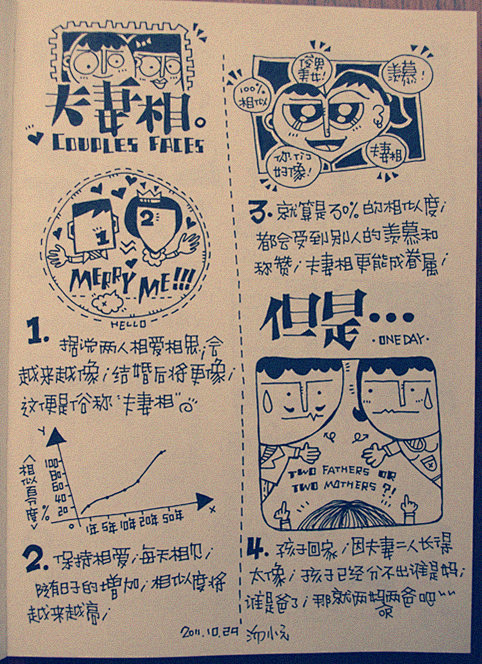 夫妻相。
COUPLES FACES
1
2
MERRY ME!!!
HELLO
1. 据说两人相爱相思,会
越来越像;结婚后将更像;
这便是俗称“夫妻相”
Y
<相似百分度>
%
100
80
60
40
20
1年 5年 10年 20年 50年
X
2. 保持相爱;每天相见;
随着日子的增加;相似度将
越来越高;
100%
相似
俊男
美女!
羡慕!
你们
好像!
夫妻相
3. 就算是30%的相似度;
都会受到别人的羡慕和
称赞;夫妻相更能成眷属;
但是...
·ONE DAY·
TWO FATHERS OR
TWO MOTHERS ?!
4. 孩子回家;因夫妻二人长得
太像;孩子已经分不出谁是妈;
谁是爸了;那就两妈两爸吧~~
OR
2011.10.29